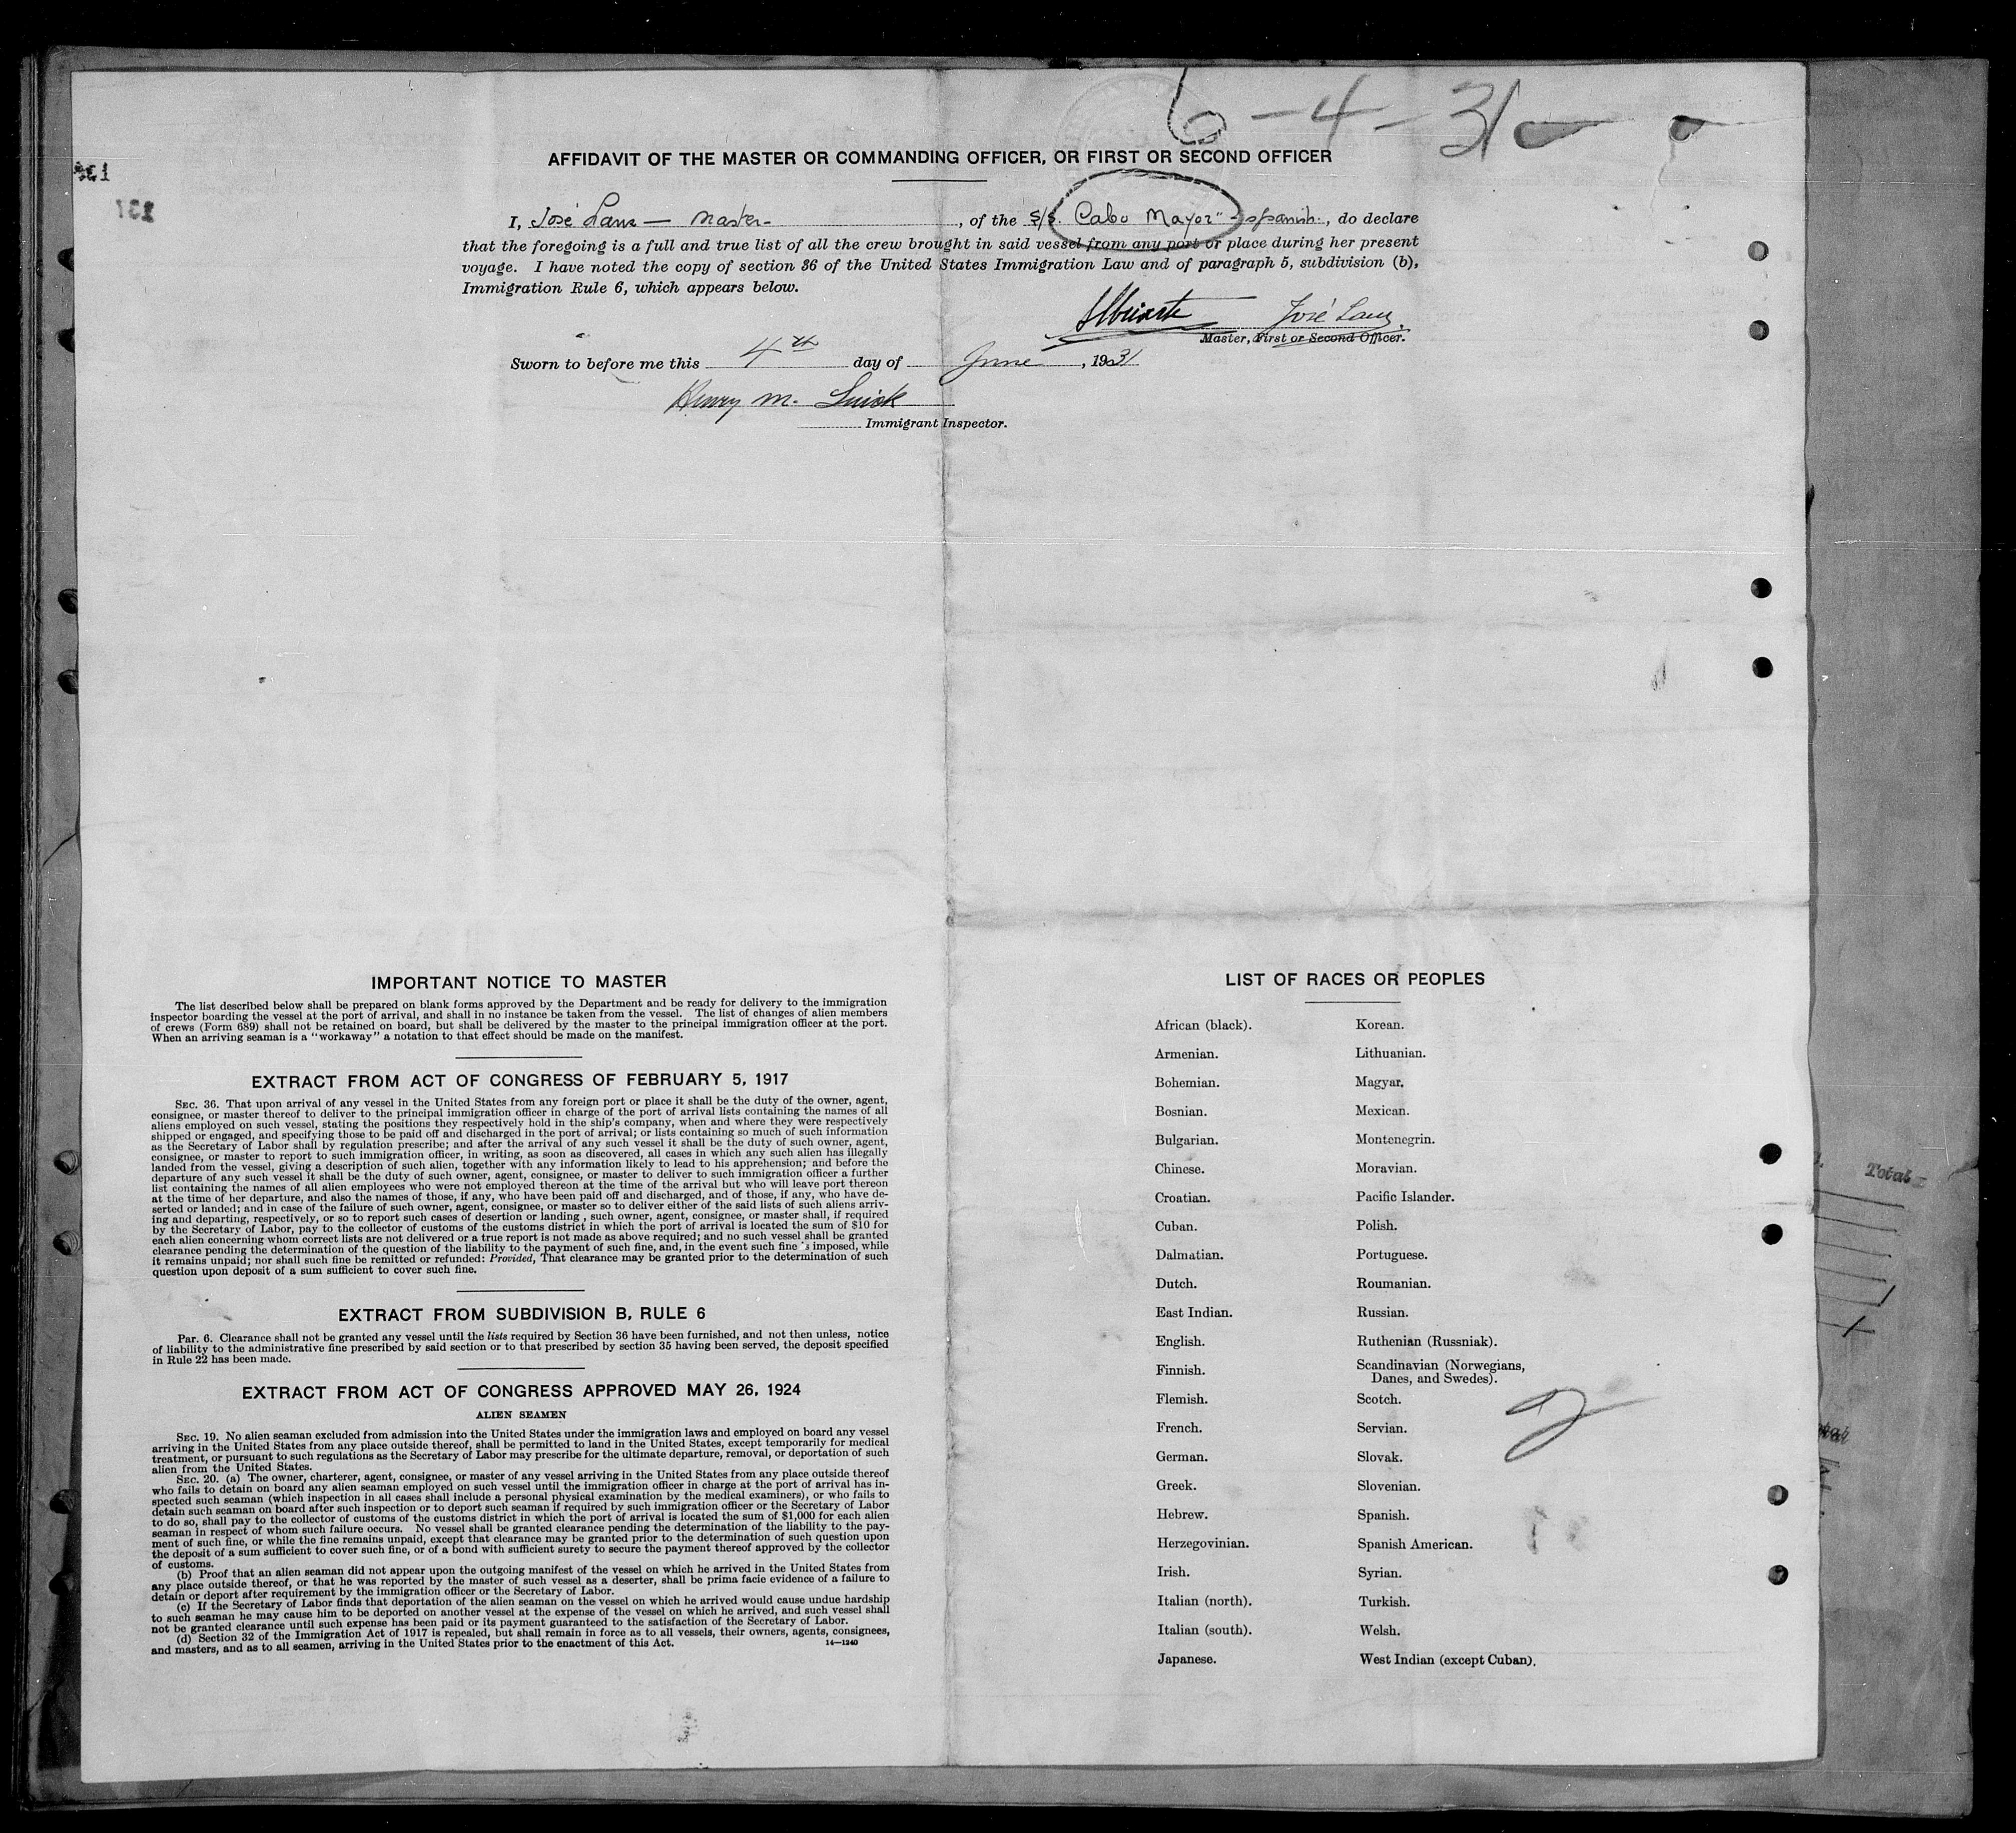 6-4-31
AFFIDAVIT OF THE MASTER OR COMMANDING OFFICER, OR FIRST OR SECOND OFFICER
I, José Lanz — Master-, of the S/S. "Cabo Mayor" - Spanish., do declare
that the foregoing is a full and true list of all the crew brought in said vessel from any port or place during her present
voyage. I have noted the copy of section 36 of the United States Immigration Law and of paragraph 5, subdivision (b),
Immigration Rule 6, which appears below.
José Lanz.
Master, First or Second Officer.
Sworn to before me this 4th day of June, 1931
Henry M.
Immigrant Inspector.
IMPORTANT NOTICE TO MASTER
The list described below shall be prepared on blank forms approved by the Department and be ready for delivery to the immigration
inspector boarding the vessel at the port of arrival, and shall in no instance be taken from the vessel. The list of changes of alien members
of crews (Form 689) shall not be retained on board, but shall be delivered by the master to the principal immigration officer at the port.
When an arriving seaman is a "workaway" a notation to that effect should be made on the manifest.
EXTRACT FROM ACT OF CONGRESS OF FEBRUARY 5, 1917
SEC. 36. That upon arrival of any vessel in the United States from any foreign port or place it shall be the duty of the owner, agent,
consignee, or master thereof to deliver to the principal immigration officer in charge of the port of arrival lists containing the names of all
aliens employed on such vessel, stating the positions they respectively hold in the ship's company, when and where they were respectively
shipped or engaged, and specifying those to be paid off and discharged in the port of arrival; or lists containing so much of such information
as the Secretary of Labor shall by regulation prescribe; and after the arrival of any such vessel it shall be the duty of such owner, agent,
consignee, or master to report to such immigration officer, in writing, as soon as discovered, all cases in which any such alien has illegally
landed from the vessel, giving a description of such alien, together with any information likely to lead to his apprehension; and before the
departure of any such vessel it shall be the duty of such owner, agent, consignee, or master to deliver to such immigration officer a further
list containing the names of all alien employees who were not employed thereon at the time of the arrival but who will leave port thereon
at the time of her departure, and also the names of those, if any, who have been paid off and discharged, and of those, if any, who have de-
serted or landed; and in case of the failure of such owner, agent, consignee, or master so to deliver either of the said lists of such aliens arriv-
ing and departing, respectively, or so to report such cases of desertion or landing, such owner, agent, consignee, or master shall, if required
by the Secretary of Labor, pay to the collector of customs of the customs district in which the port of arrival is located the sum of $10 for
each alien concerning whom correct lists are not delivered or a true report is not made as above required; and no such vessel shall be granted
clearance pending the determination of the question of the liability to the payment of such fine, and, in the event such fine is imposed, while
it remains unpaid; nor shall such fine be remitted or refunded: Provided, That clearance may be granted prior to the determination of such
question upon deposit of a sum sufficient to cover such fine.
EXTRACT FROM SUBDIVISION B, RULE 6
Par. 6. Clearance shall not be granted any vessel until the lists required by Section 36 have been furnished, and not then unless, notice
of liability to the administrative fine prescribed by said section or to that prescribed by section 35 having been served, the deposit specified
in Rule 22 has been made.
EXTRACT FROM ACT OF CONGRESS APPROVED MAY 26, 1924
ALIEN SEAMEN
SEC. 19. No alien seaman excluded from admission into the United States under the immigration laws and employed on board any vessel
arriving in the United States from any place outside thereof, shall be permitted to land in the United States, except temporarily for medical
treatment, or pursuant to such regulations as the Secretary of Labor may prescribe for the ultimate departure, removal, or deportation of such
alien from the United States.
SEC. 20. (a) The owner, charterer, agent, consignee, or master of any vessel arriving in the United States from any place outside thereof
who fails to detain on board any alien seaman employed on such vessel until the immigration officer in charge at the port of arrival has in-
spected such seaman (which inspection in all cases shall include a personal physical examination by the medical examiners), or who fails to
detain such seaman on board after such inspection or to deport such seaman if required by such immigration officer or the Secretary of Labor
to do so, shall pay to the collector of customs of the customs district in which the port of arrival is located the sum of $1,000 for each alien
seaman in respect of whom such failure occurs. No vessel shall be granted clearance pending the determination of the liability to the pay-
ment of such fine, or while the fine remains unpaid, except that clearance may be granted prior to the determination of such question upon
the deposit of a sum sufficient to cover such fine, or of a bond with sufficient surety to secure the payment thereof approved by the collector
of customs.
(b) Proof that an alien seaman did not appear upon the outgoing manifest of the vessel on which he arrived in the United States from
any place outside thereof, or that he was reported by the master of such vessel as a deserter, shall be prima facie evidence of a failure to
detain or deport after requirement by the immigration officer or the Secretary of Labor.
(c) If the Secretary of Labor finds that deportation of the alien seaman on the vessel on which he arrived would cause undue hardship
to such seaman he may cause him to be deported on another vessel at the expense of the vessel on which he arrived, and such vessel shall
not be granted clearance until such expense has been paid or its payment guaranteed to the satisfaction of the Secretary of Labor.
(d) Section 32 of the Immigration Act of 1917 is repealed, but shall remain in force as to all vessels, their owners, agents, consignees,
and masters, and as to all seamen, arriving in the United States prior to the enactment of this Act.
14—1240
LIST OF RACES OR PEOPLES
African (black).
Armenian.
Bohemian.
Bosnian.
Bulgarian.
Chinese.
Croatian.
Cuban.
Dalmatian.
Dutch.
East Indian.
English.
Finnish.
Flemish.
French.
German.
Greek.
Hebrew.
Herzegovinian.
Irish.
Italian (north).
Italian (south).
Japanese.
Korean.
Lithuanian.
Magyar.
Mexican.
Montenegrin.
Moravian.
Pacific Islander.
Polish.
Portuguese.
Roumanian.
Russian.
Ruthenian (Russniak).
Scandinavian (Norwegians,
Danes, and Swedes).
Scotch.
Servian.
Slovak.
Slovenian.
Spanish.
Spanish American.
Syrian.
Turkish.
Welsh.
West Indian (except Cuban).
Total